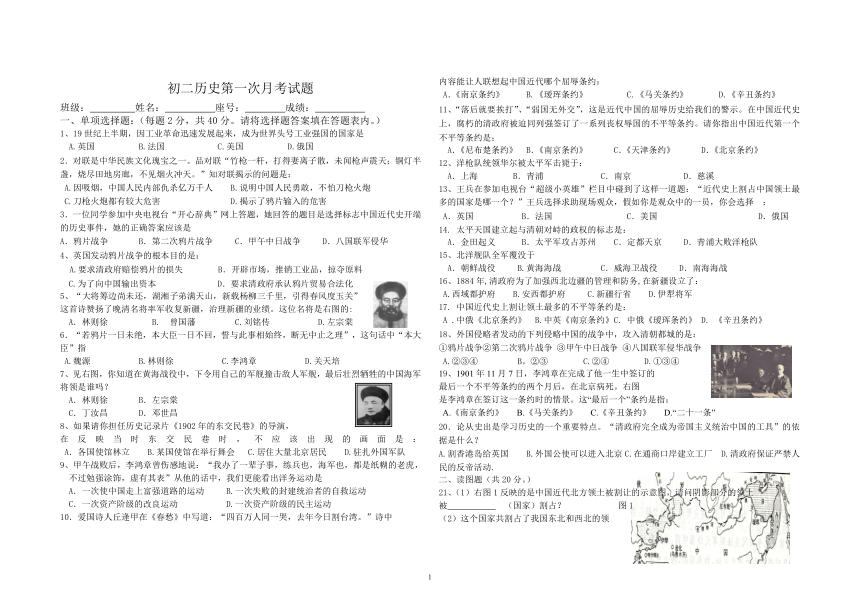 初二历史第一次月考试题
班级：________姓名：__________座号：________成绩：__________
一、单项选择题：（每题 2 分，共 40 分。请将选择题答案填在答题表内。）
1、19 世纪上半期，因工业革命迅速发展起来，成为世界头号工业强国的国家是
A.英国 B.法国 C.美国 D.俄国
2．对联是中华民族文化瑰宝之一。品对联“竹枪一杆，打得妻离子散，未闻枪声震天；铜灯半
盏，烧尽田地房廊，不见烟火冲天。”知对联揭示的问题是：
A.因吸烟，中国人民内部仇杀亿万千人 B.说明中国人民勇敢，不怕刀枪火炮
C.刀枪火炮都有较大危害 D.揭示了鸦片输入的危害
3．一位同学参加中央电视台“开心辞典”网上答题，她回答的题目是选择标志中国近代史开端
的历史事件，她的正确答案应该是
A．鸦片战争 B．第二次鸦片战争 C．甲午中日战争 D．八国联军侵华
4、英国发动鸦片战争的根本目的是：
A.要求清政府赔偿鸦片的损失 B．开辟市场，推销工业品，掠夺原料
C.为了向中国输出资本 D．要求清政府承认鸦片贸易合法化
5、“大将筹边尚未还，湖湘子弟满天山，新栽杨柳三千里，引得春风度玉关”
这首诗赞扬了晚清名将率军收复新疆，治理新疆的业绩。这位名将是右图的：
A．林则徐 B． 曾国藩 C．刘铭传 D.左宗棠
6．“若鸦片一日未绝，本大臣一日不回，誓与此事相始终，断无中止之理”，这句话中“本大
臣”指
A.魏源 B.林则徐 C.李鸿章 D.关天培
7、见右图，你知道在黄海战役中，下令用自己的军舰撞击敌人军舰，最后壮烈牺牲的中国海军
将领是谁吗？
A．林则徐 B．左宗棠
C．丁汝昌 D．邓世昌
8、如果请你担任历史记录片《1902 年的东交民巷》的导演，
在反映当时东交民巷时，不应该出现的画面是：
A．各国使馆林立 B.某国使馆在举行舞会 C.居住大量北京居民 D.驻扎外国军队
9、甲午战败后，李鸿章曾伤感地说：“我办了一辈子事，练兵也，海军也，都是纸糊的老虎，
不过勉强涂饰，虚有其表”从他的话中，我们更能看出洋务运动是
A．一次使中国走上富强道路的运动 B.一次失败的封建统治者的自救运动
C．一次资产阶级的改良运动 D.一次资产阶级的民主运动
10．爱国诗人丘逢甲在《春愁》中写道：“四百万人同一哭，去年今日割台湾。”诗中
内容能让人联想起中国近代哪个屈辱条约：
A．《南京条约》 B．《瑷珲条约》 C．《马关条约》 D．《辛丑条约》
11、“落后就要挨打”、“弱国无外交”，这是近代中国的屈辱历史给我们的警示。在中国近代史
上，腐朽的清政府被迫同列强签订了一系列丧权辱国的不平等条约。请你指出中国近代第一个
不平等条约是：
A.《尼布楚条约》 B．《南京条约》 C.《天津条约》 D.《北京条约》
12、洋枪队统领华尔被太平军击毙于：
A．上海 B．青浦 C．南京 D．慈溪
13、王兵在参加电视台“超级小英雄”栏目中碰到了这样一道题：“近代史上割占中国领土最
多的国家是哪一个？”王兵选择求助现场观众，假如你是观众中的一员，你会选择 ：
A．英国 B．法国 C．美国 D．俄国
14．太平天国建立起与清朝对峙的政权的标志是：
A．金田起义 B．太平军攻占苏州 C．定都天京 D．青浦大败洋枪队
15、北洋舰队全军覆没于
A．朝鲜战役 B.黄海海战 C．威海卫战役 D．南海海战
16、1884 年,清政府为了加强西北边疆的管理和防务,在新疆设立了：
A.西域都护府 B.安西都护府 C.新疆行省 D.伊犁将军
17．中国近代史上割让领土最多的不平等条约是：
A．中俄《北京条约》 B.中英《南京条约》C．中俄《瑷珲条约》 D．《辛丑条约》
18、外国侵略者发动的下列侵略中国的战争中，攻入清朝都城的是：
①鸦片战争②第二次鸦片战争 ③甲午中日战争 ④八国联军侵华战争
A．②③④ B．②③ C.②④ D.①③④
19、1901 年 11 月 7 日，李鸿章在完成了他一生中签订的
最后一个不平等条约的两个月后，在北京病死。右图
是李鸿章在签订这一条约时的情景。这“最后一个”条约是指：
A.《南京条约》 B.《马关条约》 C.《辛丑条约》 D.“二十一条”
20．论从史出是学习历史的一个重要特点。“清政府完全成为帝国主义统治中国的工具”的依
据是什么？
A.割香港岛给英国 B.外国公使可以进入北京 C.在通商口岸建立工厂 D.清政府保证严禁人
民的反帝活动.
二、读图题（共 20 分。）
21、（1）右图 1 反映的是中国近代北方领土被割让的示意图。请问阴影部分的领土
被__________（国家）割占？ 图 1
（2）这个国家共割占了我国东北和西北的领
1